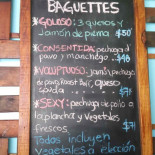 BAGUETTES
*GOLOSO: 3 quesos y
Jamón de pierna $50
*CONSENTIDA: pechuga d
pavo y manchego $48
*VOLUPTUOSO: jamón, pechuga
de pavo, Roast Beef, queso
gouda $71
*SEXY: pechuga de pollo a
la plancha y vegetales
frescos $71
Todas incluyen
vegetales a elección